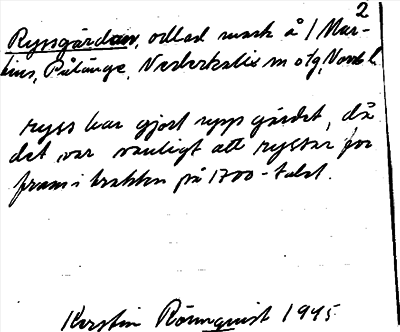 2
Ryssgärdan, odlad mark å 1 Mar-
tins, Pålänge, Nederkalix sn o tg, Nordb l.
ryss har gjort upp gärdet, då
det var vanligt att ryssar for
fram i trakten på 1700-talet.
Kerstin Rönnquist 1945